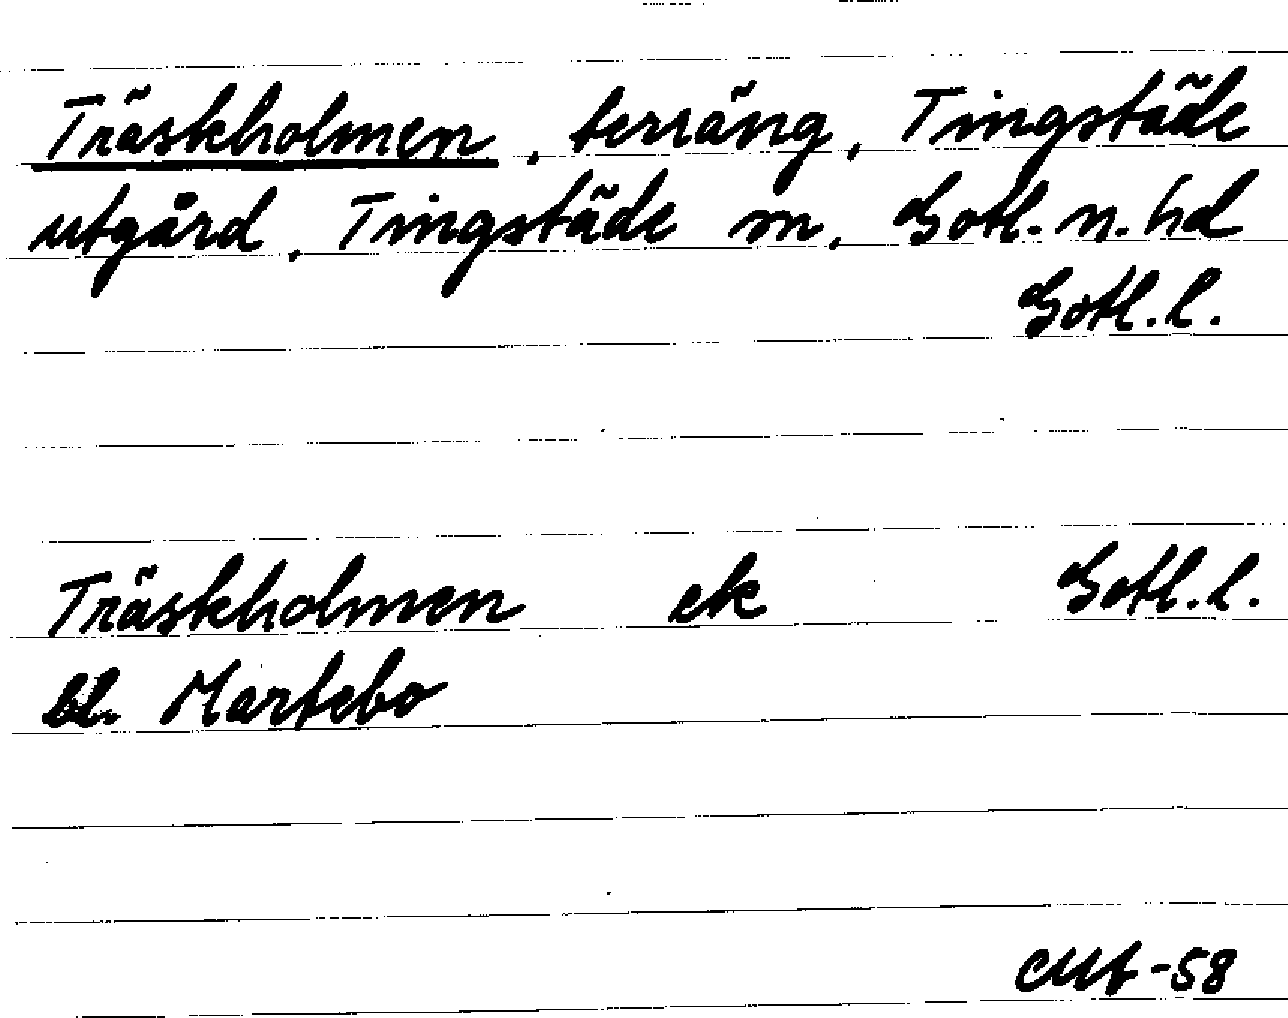 Träskholmen, terräng, Tingstäde
utgård, Tingstäde sn, Gotl. n. hd
Gotl. l.
Träskholmen ek Gotl. l.
bl. Martebo
CMt-58